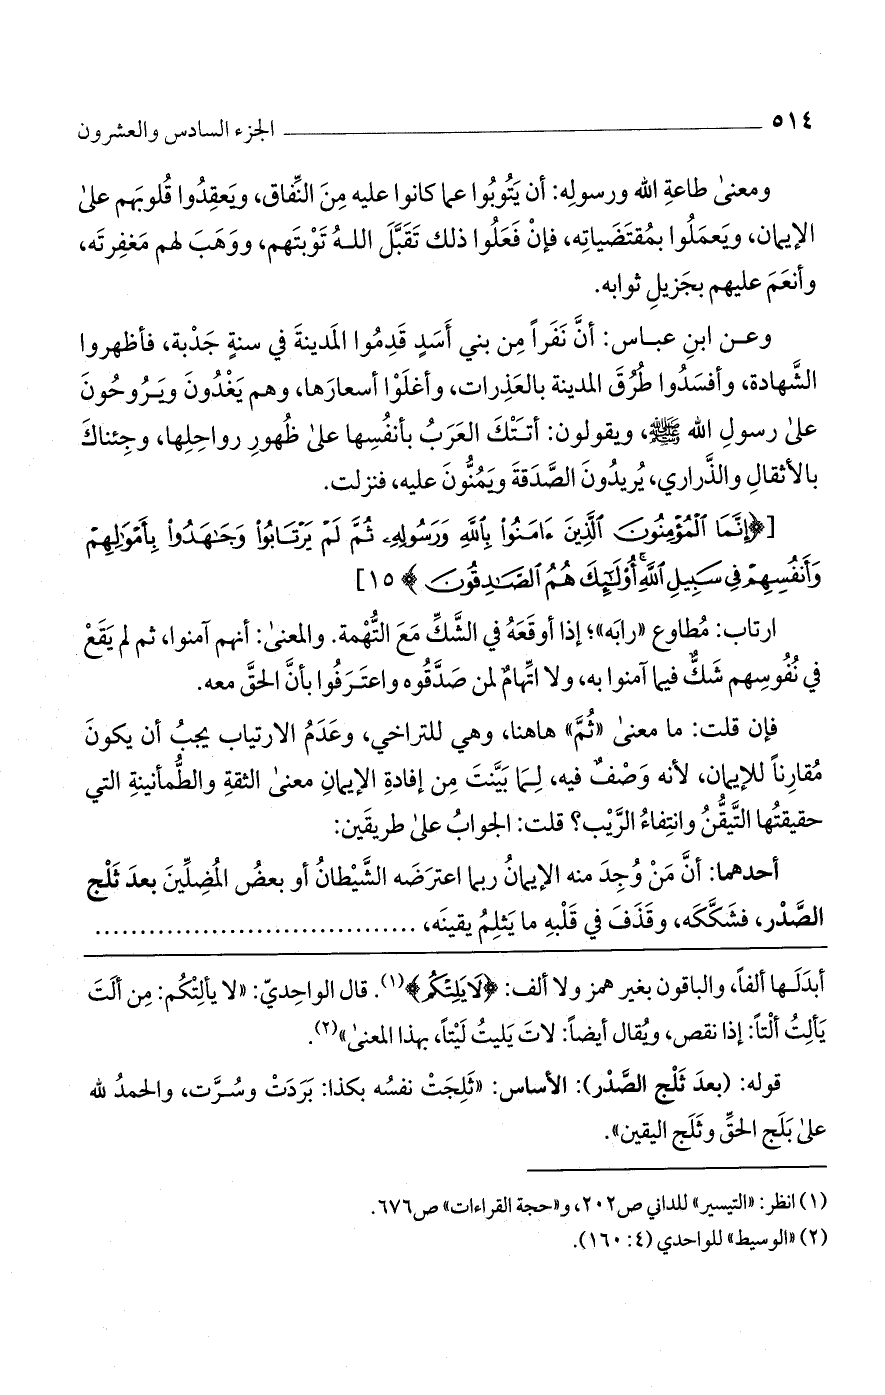 ٥١٤ ــــــــــــــــــــــــــــــــــــــــ الجزء السادس والعشرون
ومعنىٰ طاعةِ الله ورسولِه: أن يَتُوبُوا عما كانوا عليه مِنَ النِّفاق، ويَعقِدُوا قُلوبَهم علىٰ
الإيمان، ويَعمَلُوا بمُقتَضَياتِه، فإنْ فَعَلُوا ذلك تَقَبَّلَ اللهُ تَوْبتَهم، ووَهَبَ لهم مَغفِرتَه،
وأنعَمَ عليهم بجَزيلِ ثوابه.
وعن ابنِ عباس: أنَّ نَفَراً مِن بني أَسَدٍ قَدِمُوا المَدينةَ في سنةٍ جَدْبة، فأظهروا
الشَّهادة، وأفسَدُوا طُرُقَ المدينة بالعَذِرات، وأغلَوْا أسعارَها، وهم يَغْدُونَ ويَروحُونَ
علىٰ رسولِ الله ﷺ، ويقولون: أتَتْكَ العَرَبُ بأنفُسِها علىٰ ظُهورِ رواحِلِها، وجِئناكَ
بالأثقالِ والذَّراري، يُريدُونَ الصَّدَقةَ ويَمُنُّونَ عليه، فنزلت.
[﴿إِنَّمَا ٱلْمُؤْمِنُونَ ٱلَّذِينَ ءَامَنُوا۟ بِٱللَّهِ وَرَسُولِهِۦ ثُمَّ لَمْ يَرْتَابُوا۟ وَجَـٰهَدُوا۟ بِأَمْوَٰلِهِمْ
وَأَنفُسِهِمْ فِى سَبِيلِ ٱللَّهِ ۚ أُو۟لَـٰٓئِكَ هُمُ ٱلصَّـٰدِقُونَ﴾ ١٥]
ارتاب: مُطاوع «رابَه»؛ إذا أوقَعَهُ في الشَّكِّ مَعَ التُّهمة. والمعنىٰ: أنهم آمنوا، ثم لم يَقَعْ
في نُفُوسِهم شَكٌّ فيما آمنوا به، ولا اتِّهامٌ لمن صَدَّقُوه واعتَرَفُوا بأنَّ الحقَّ معه.
فإن قلت: ما معنىٰ «ثُمَّ» هاهنا، وهي للتراخي، وعَدَمُ الارتياب يجبُ أن يكونَ
مُقارِناً للإيمان، لأنه وَصْفٌ فيه، لِمَا بَيَّنتَ مِن إفادةِ الإيمانِ معنىٰ الثقةِ والطُّمأنينةِ التي
حقيقتُها التَّيقُّنُ وانتِفاءُ الرَّيْب؟ قلت: الجوابُ علىٰ طريقَين:
أحدهما: أنَّ مَنْ وُجِدَ منه الإيمانُ ربما اعترَضَه الشَّيْطانُ أو بعضُ المُضِلِّينَ بعدَ ثَلْجِ
الصَّدْر، فشَكَّكَه، وقَذَفَ في قَلْبِهِ ما يَثلِمُ يقينَه، ..................................
أبدَلَـها ألفاً، والباقون بغير همز ولا ألف: ﴿لَا يَلِتْكُم﴾(١). قال الواحِديّ: «لا يألِتْكُم: مِن ألَتَ
يَألِتُ ألْتاً: إذا نقص، ويُقال أيضاً: لاتَ يَليتُ لَيْتاً، بهذا المعنىٰ»(٢).
قوله: (بعدَ ثَلْجِ الصَّدْر): الأساس: «ثَلِجَتْ نفسُه بكذا: بَرَدَتْ وسُرَّت، والحمدُ لله
علىٰ بَلَجِ الحقِّ وثَلَجِ اليقين».
(١) انظر: «التيسير» للداني ص٢٠٢، و«حجة القراءات» ص٦٧٦.
(٢) «الوسيط» للواحدي (٤: ١٦٠).